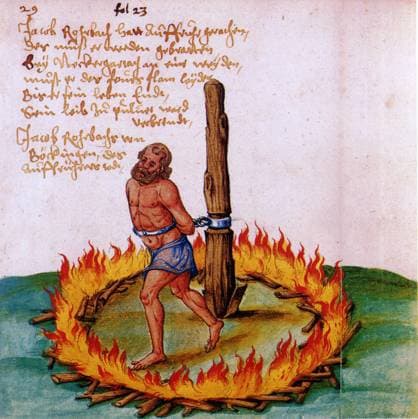 29 fol 23
Jacob Rohrbach hatt Auffruhr gerathen,
Des must er werden gebratten
Bey Neckergartach an ein weyden,
must er des feurs flam leyden
Biß er sein leben endt,
Sein leib zu puluer ward
verbrendt,
Jacob Rohrbachs von
Böckingen, des
Auffrhürers todt.